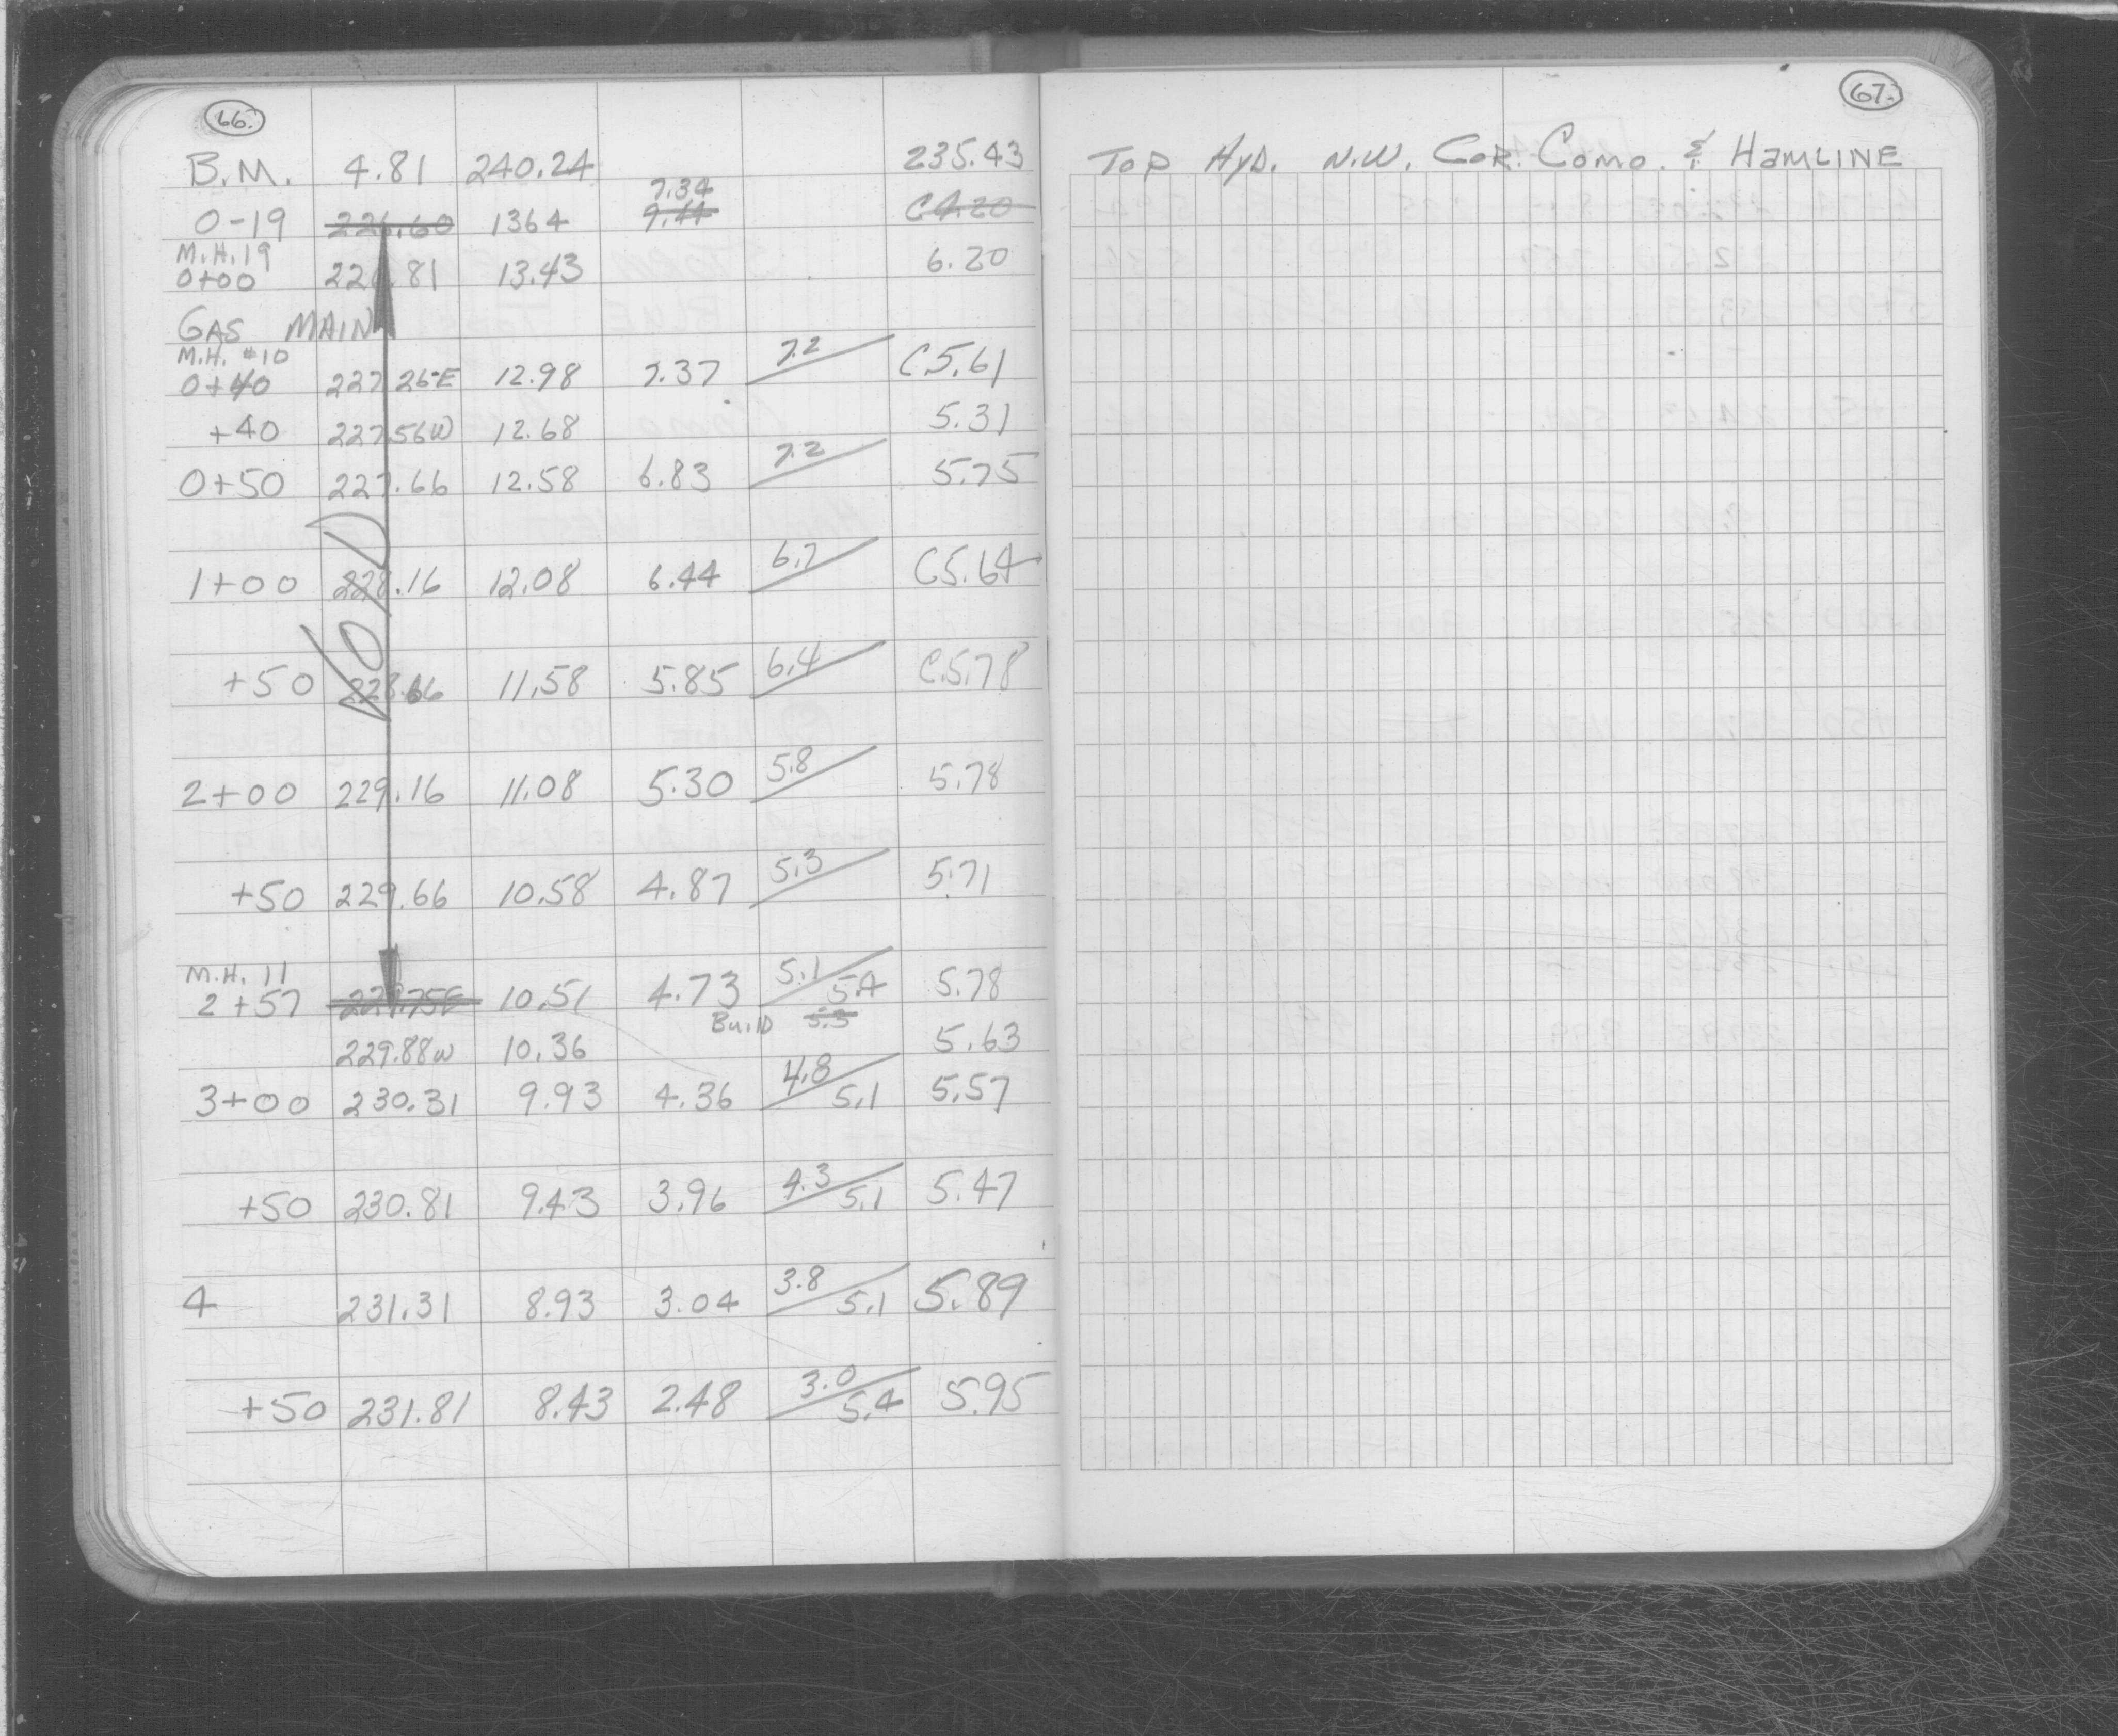 66.
B.M. 4.81 240.24 235.43
7.34
0-19 226.60 1364 9.44 C4.20
M.H. 19
0+00 226.81 13.43 6.20
GAS MAIN
M.H. #10 7.2
0+40 227.26E 12.98 7.37 C5.61
+40 227.56W 12.68 5.31
7.2
0+50 227.66 12.58 6.83 5.75
6.7
1+00 228.16 12.08 6.44 C5.64
6.4
+50 228.66 11.58 5.85 C.5.78
5.8
2+00 229.16 11.08 5.30 5.78
5.3
+50 229.66 10.58 4.87 5.71
M.H. 11 5.1
2+57 229.75E 10.51 4.73 5.4 5.78
Build 5.5
229.88W 10.36 5.63
4.8
3+00 230.31 9.93 4.36 5.1 5.57
4.3
+50 230.81 9.43 3.96 5.1 5.47
3.8
4 231.31 8.93 3.04 5.1 5.89
3.0
+50 231.81 8.43 2.48 5.4 5.95
67.
TOP HYD. N.W. COR. COMO. & HAMLINE